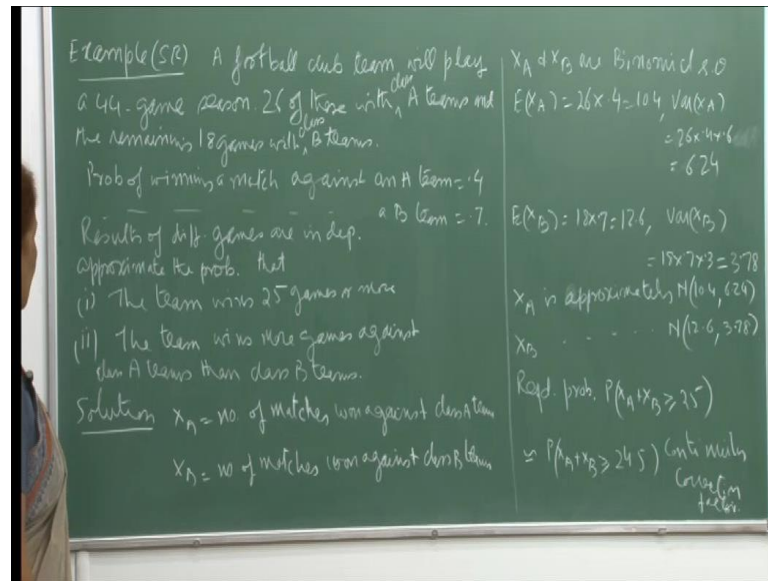 Example (SR) A football club team will play
a 44-game season. 26 of these with class A teams and
the remaining 18 games with class B teams.
Prob of winning a match against an A team = .4
— — — — — a B team = .7.
Results of diff. games are indep.
approximate the prob. that
(i) The team wins 25 games or more
(ii) The team wins more games against
class A teams than class B teams.
Solution X_A = no. of matches won against class A team
X_B = no of matches won against class B teams
X_A & X_B are Binomial r.v
E(X_A) = 26×.4 = 10.4, Var(X_A)
= 26×.4×.6
= 6.24
E(X_B) = 18×.7 = 12.6, Var(X_B)
= 18×.7×.3 = 3.78
X_A is approximately N(10.4, 6.24)
X_B . . . . . . N(12.6, 3.78)
Reqd. prob. P(X_A+X_B ≥ 25)
≃ P(X_A+X_B ≥ 24.5) Continuity
Correction
factor.